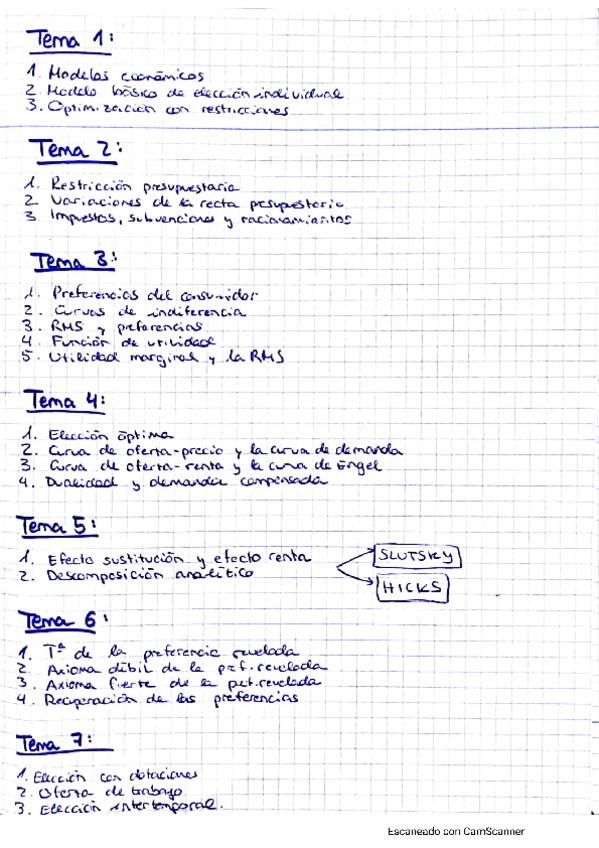 Tema 1:
1. Modelos económicos
2. Modelo básico de elección individual
3. Optimización con restricciones
Tema 2:
1. Restricción presupuestaria
2. Variaciones de la recta presupuestaria
3. Impuestos, subvenciones y racionamientos
Tema 3:
1. Preferencias del consumidor
2. Curvas de indiferencia
3. RMS y preferencias
4. Función de utilidad
5. Utilidad marginal y la RMS
Tema 4:
1. Elección óptima
2. Curva de oferta-precio y la curva de demanda
3. Curva de oferta-renta y la curva de Engel
4. Dualidad y demanda compensada
Tema 5:
1. Efecto sustitución y efecto renta
2. Descomposición analítico
SLUTSKY
HICKS
Tema 6:
1. Tª de la preferencia revelada
2. Axioma débil de la pref. revelada
3. Axioma fuerte de la pref. revelada
4. Recuperación de las preferencias
Tema 7:
1. Elección con dotaciones
2. Oferta de trabajo
3. Elección intertemporal.
Escaneado con CamScanner